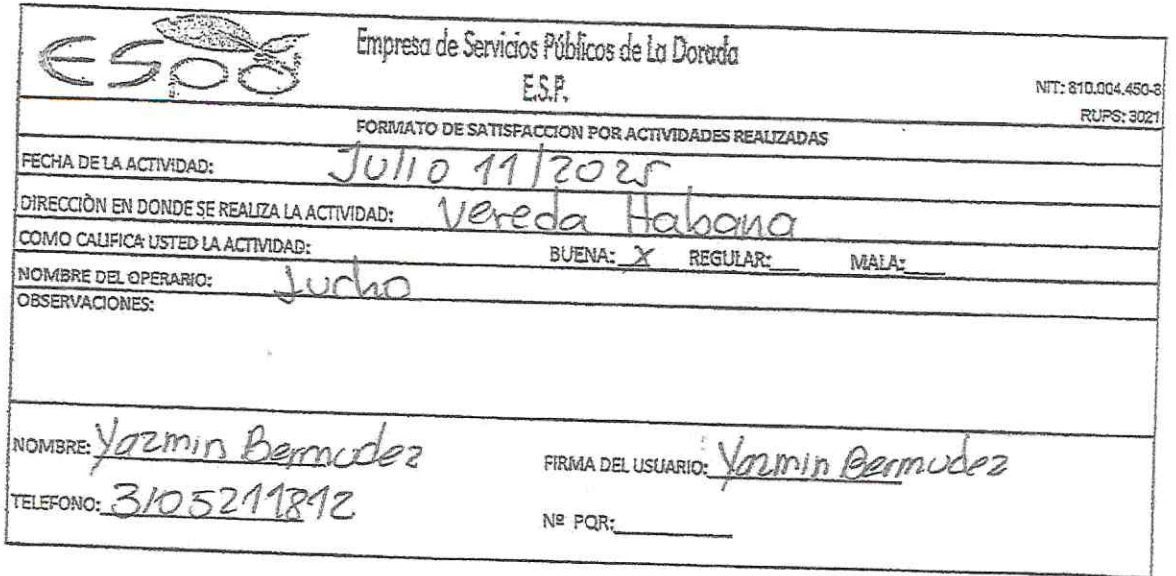 ESPD
Empresa de Servicios Públicos de La Dorada
E.S.P.
NIT: 810.004.450-8
RUPS: 3021
FORMATO DE SATISFACCION POR ACTIVIDADES REALIZADAS
FECHA DE LA ACTIVIDAD: Julio 11/2025
DIRECCIÒN EN DONDE SE REALIZA LA ACTIVIDAD: Vereda Habana
COMO CALIFICA USTED LA ACTIVIDAD: BUENA: X REGULAR:___ MALA:___
NOMBRE DEL OPERARIO: Lucho
OBSERVACIONES:
NOMBRE: Yazmin Bermudez FIRMA DEL USUARIO: Yazmin Bermudez
TELEFONO: 3105211812 Nº PQR:________